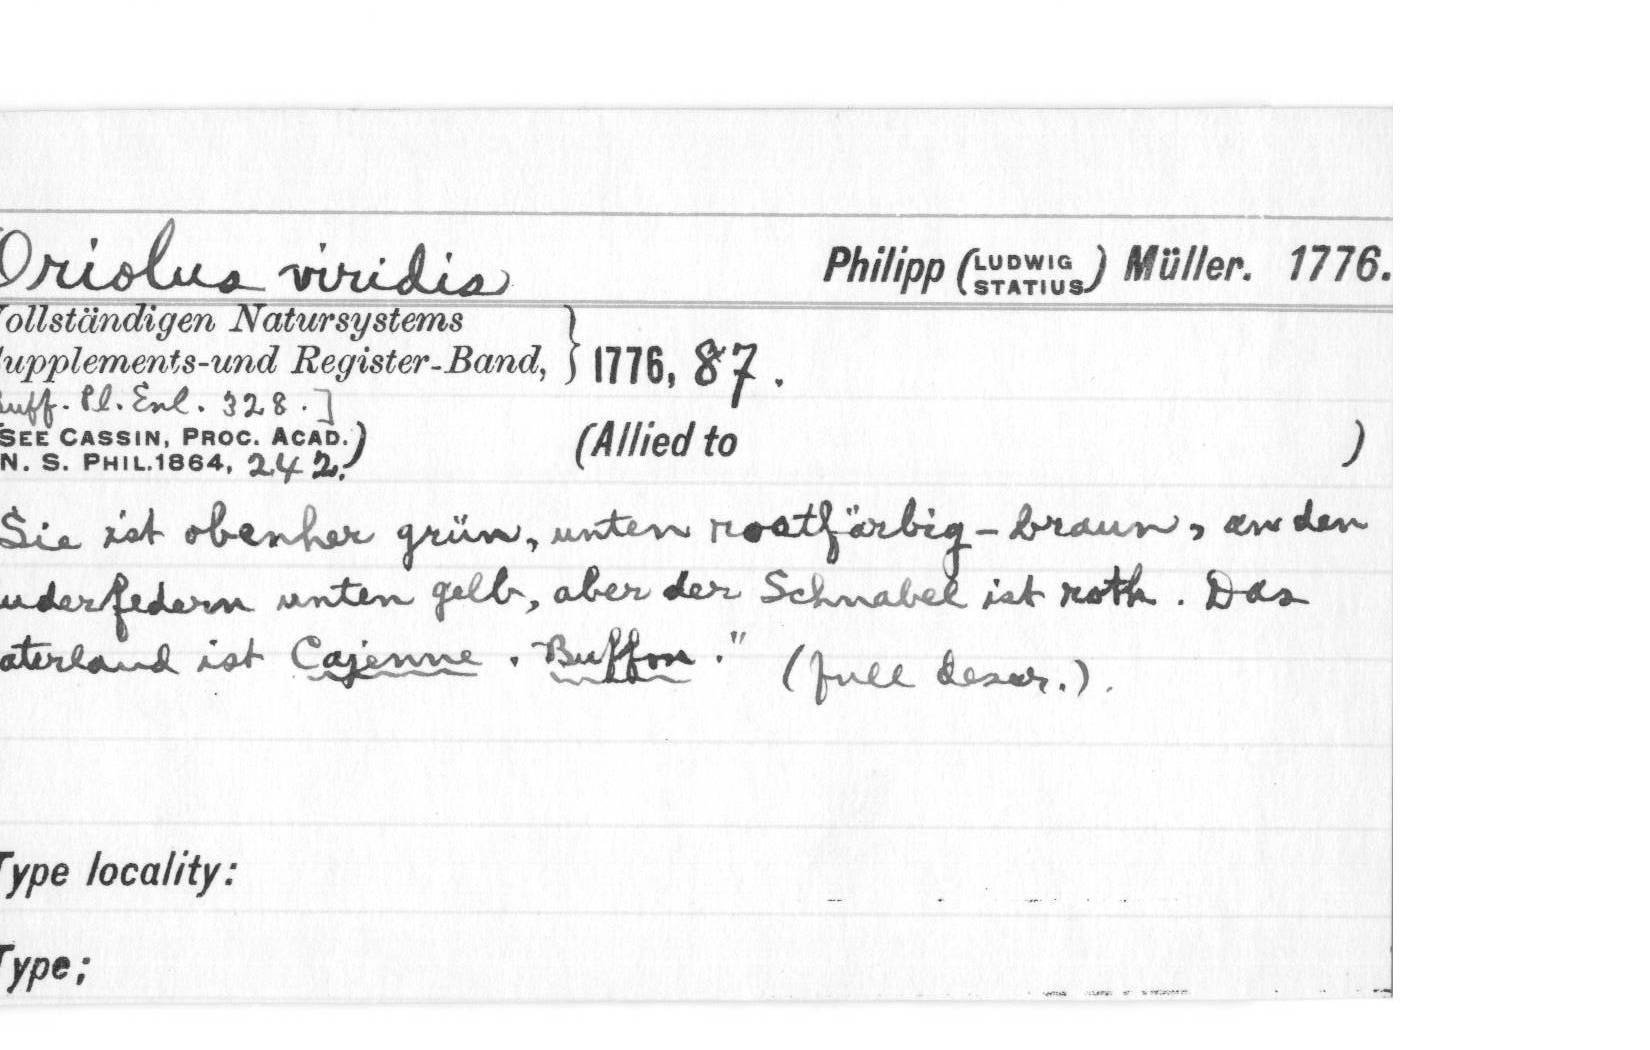 Oriolus viridis Philipp (LUDWIG STATIUS) Müller. 1776.
ollständigen Natursystems
upplements-und Register-Band, } 1776, 87.
uff. Pl. Enl. 328.]
SEE CASSIN, PROC. ACAD.
N. S. PHIL. 1864, 242.) (Allied to )
Sie ist obenher grün, unten rostfärbig-braun, an den
uderfedern unten gelb, aber der Schnabel ist roth. Das
aterland ist Cajenne. Buffon." (full descr.).
Type locality:
Type;